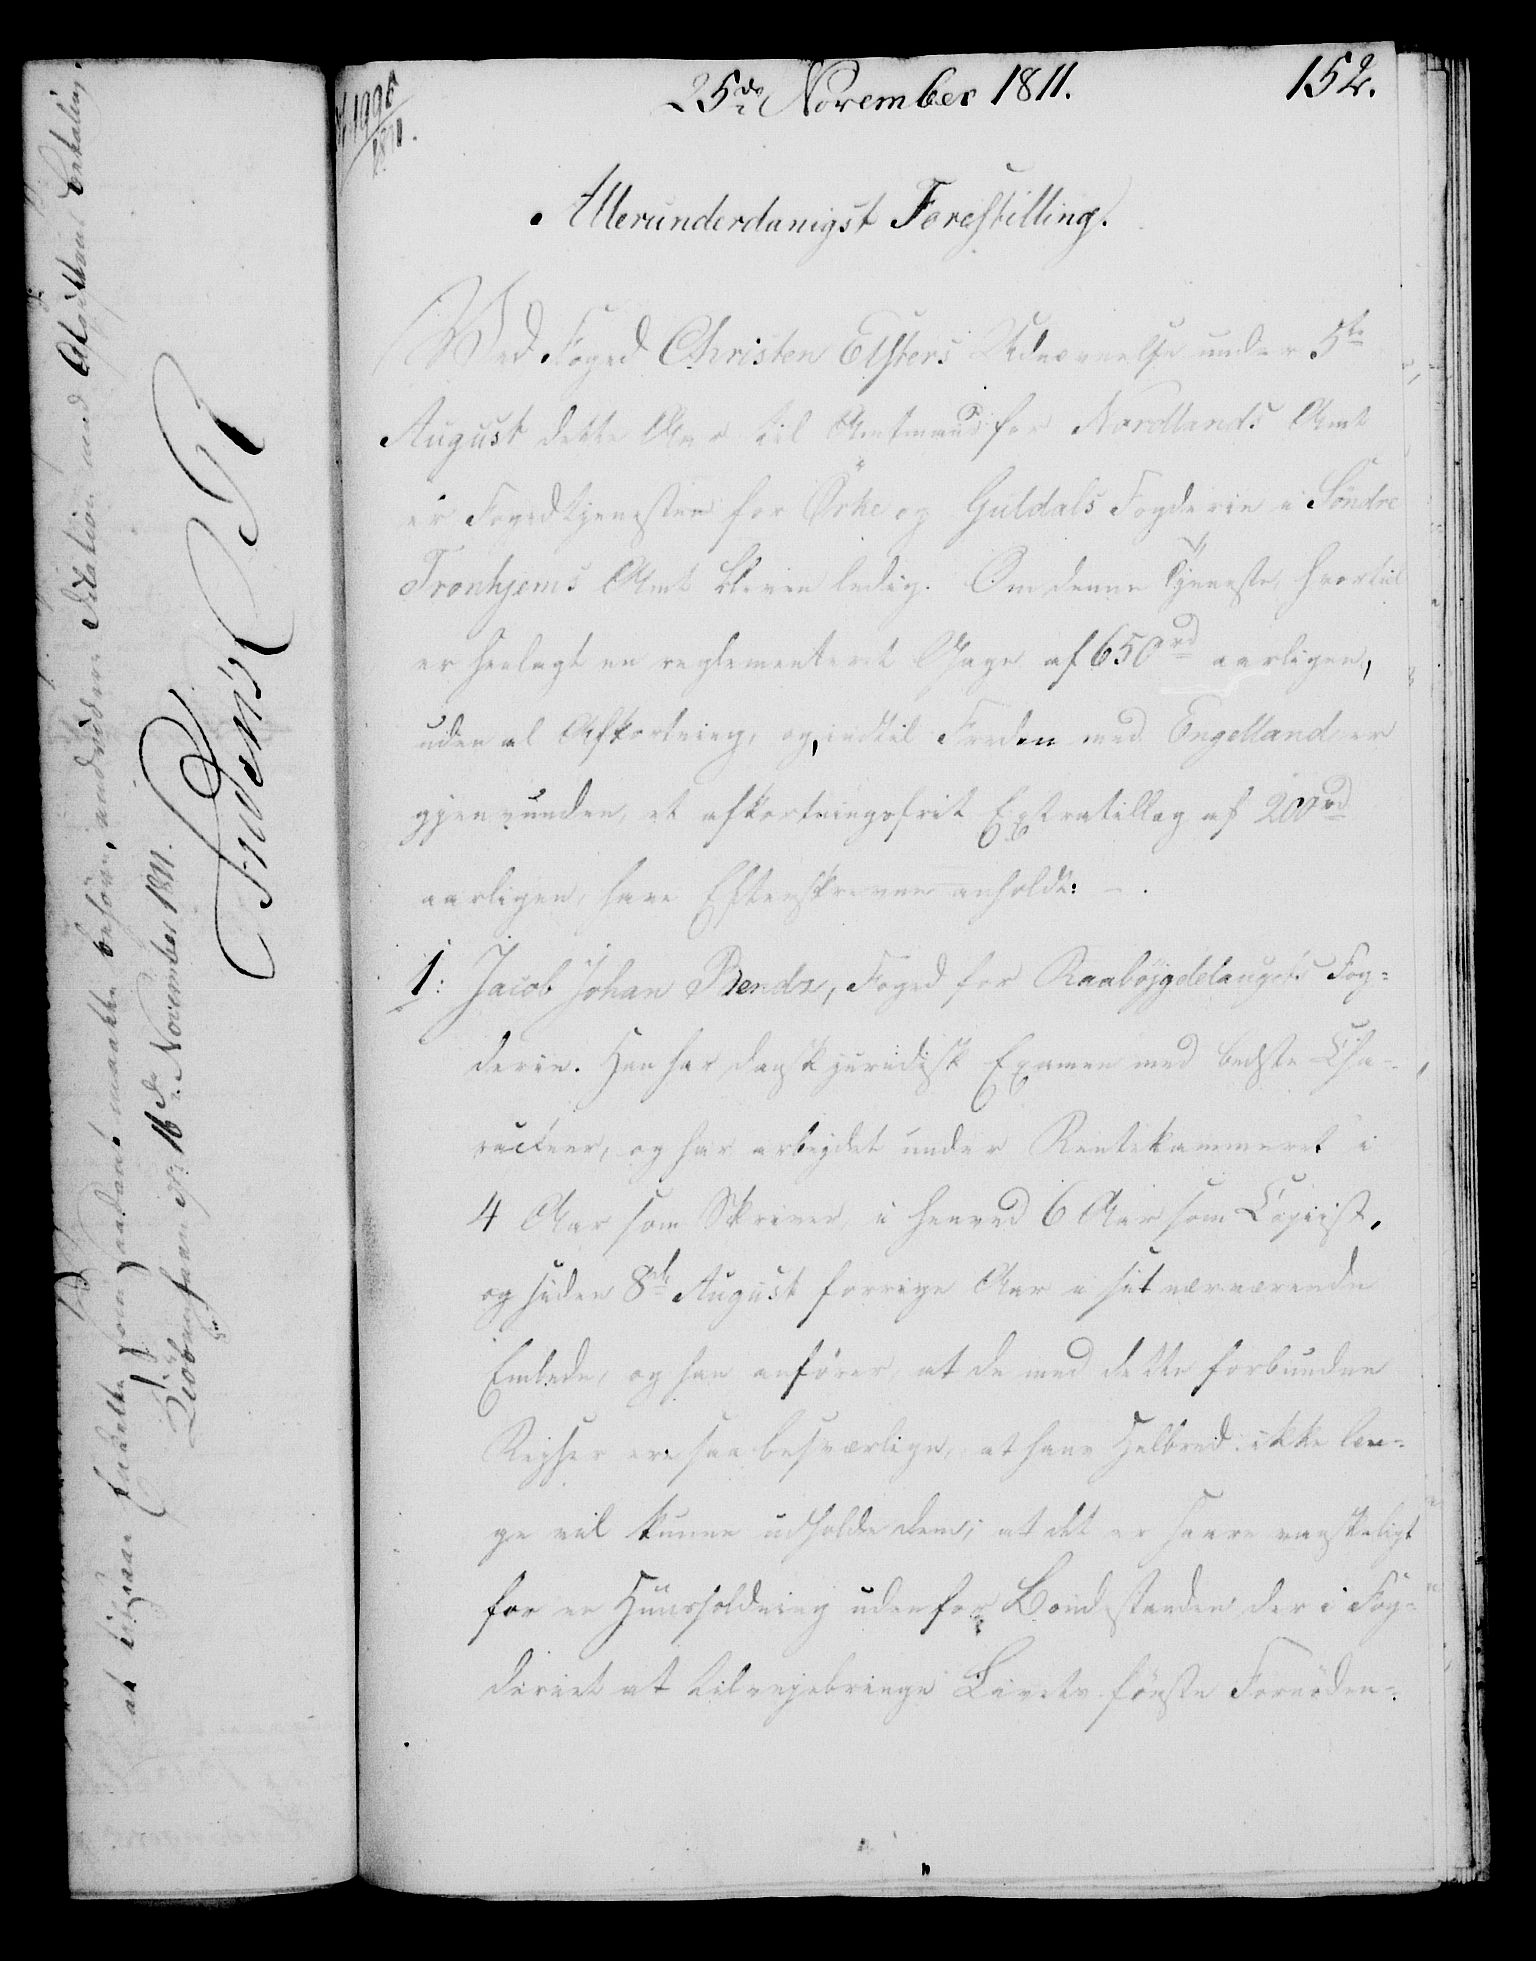 25de November 1811. 152.
1811.
Allerunderdanigst Forestilling.
Ved Foged Christen Elsters Udnævnelse under 5te
August dette Aar til Amtmand for Nordlands Amt
er Fogedtjenesten for Örke og Guldals Fogderie i Söndre
Tronhjems Amt bleven ledig. Om denne Tjeneste, hvortil
er henlagt en reglementeret Gage af 650 rd aarligen,
uden al Afkortning, og, indtil Freden med Engelland er
gjenvunden, et afkortningsfrit Extratillæg af 200 rd
aarligen, have Efterskrevne anholdt: -.
1: Jacob Johan Bendz, Foged for Raabøjgdelaugets Fog=
derie. Han har dansk juridisk Examen med bedste Cha-
racteer, og har arbejdet under Rentekammeret i
4 Aar som Skriver, i henved 6 Aar som Copiist,
og siden 8de August forrige Aar i sit nærværende
Embede, og han anförer, at de med dette forbundne
Rejser ere saa besværlige, at hans Helbred ikke læn=
ge vil kunne udholde dem; at det er saare vanskeligt
for en Huusholdning udenfor Bondestanden der i Fog=
deriet at tilvejebringe Livets förste Fornöden=
at tilstaae saadant maatte behöve, end videre Station med
Kiöbenhavn d. 16de November 1811.
Friderich R